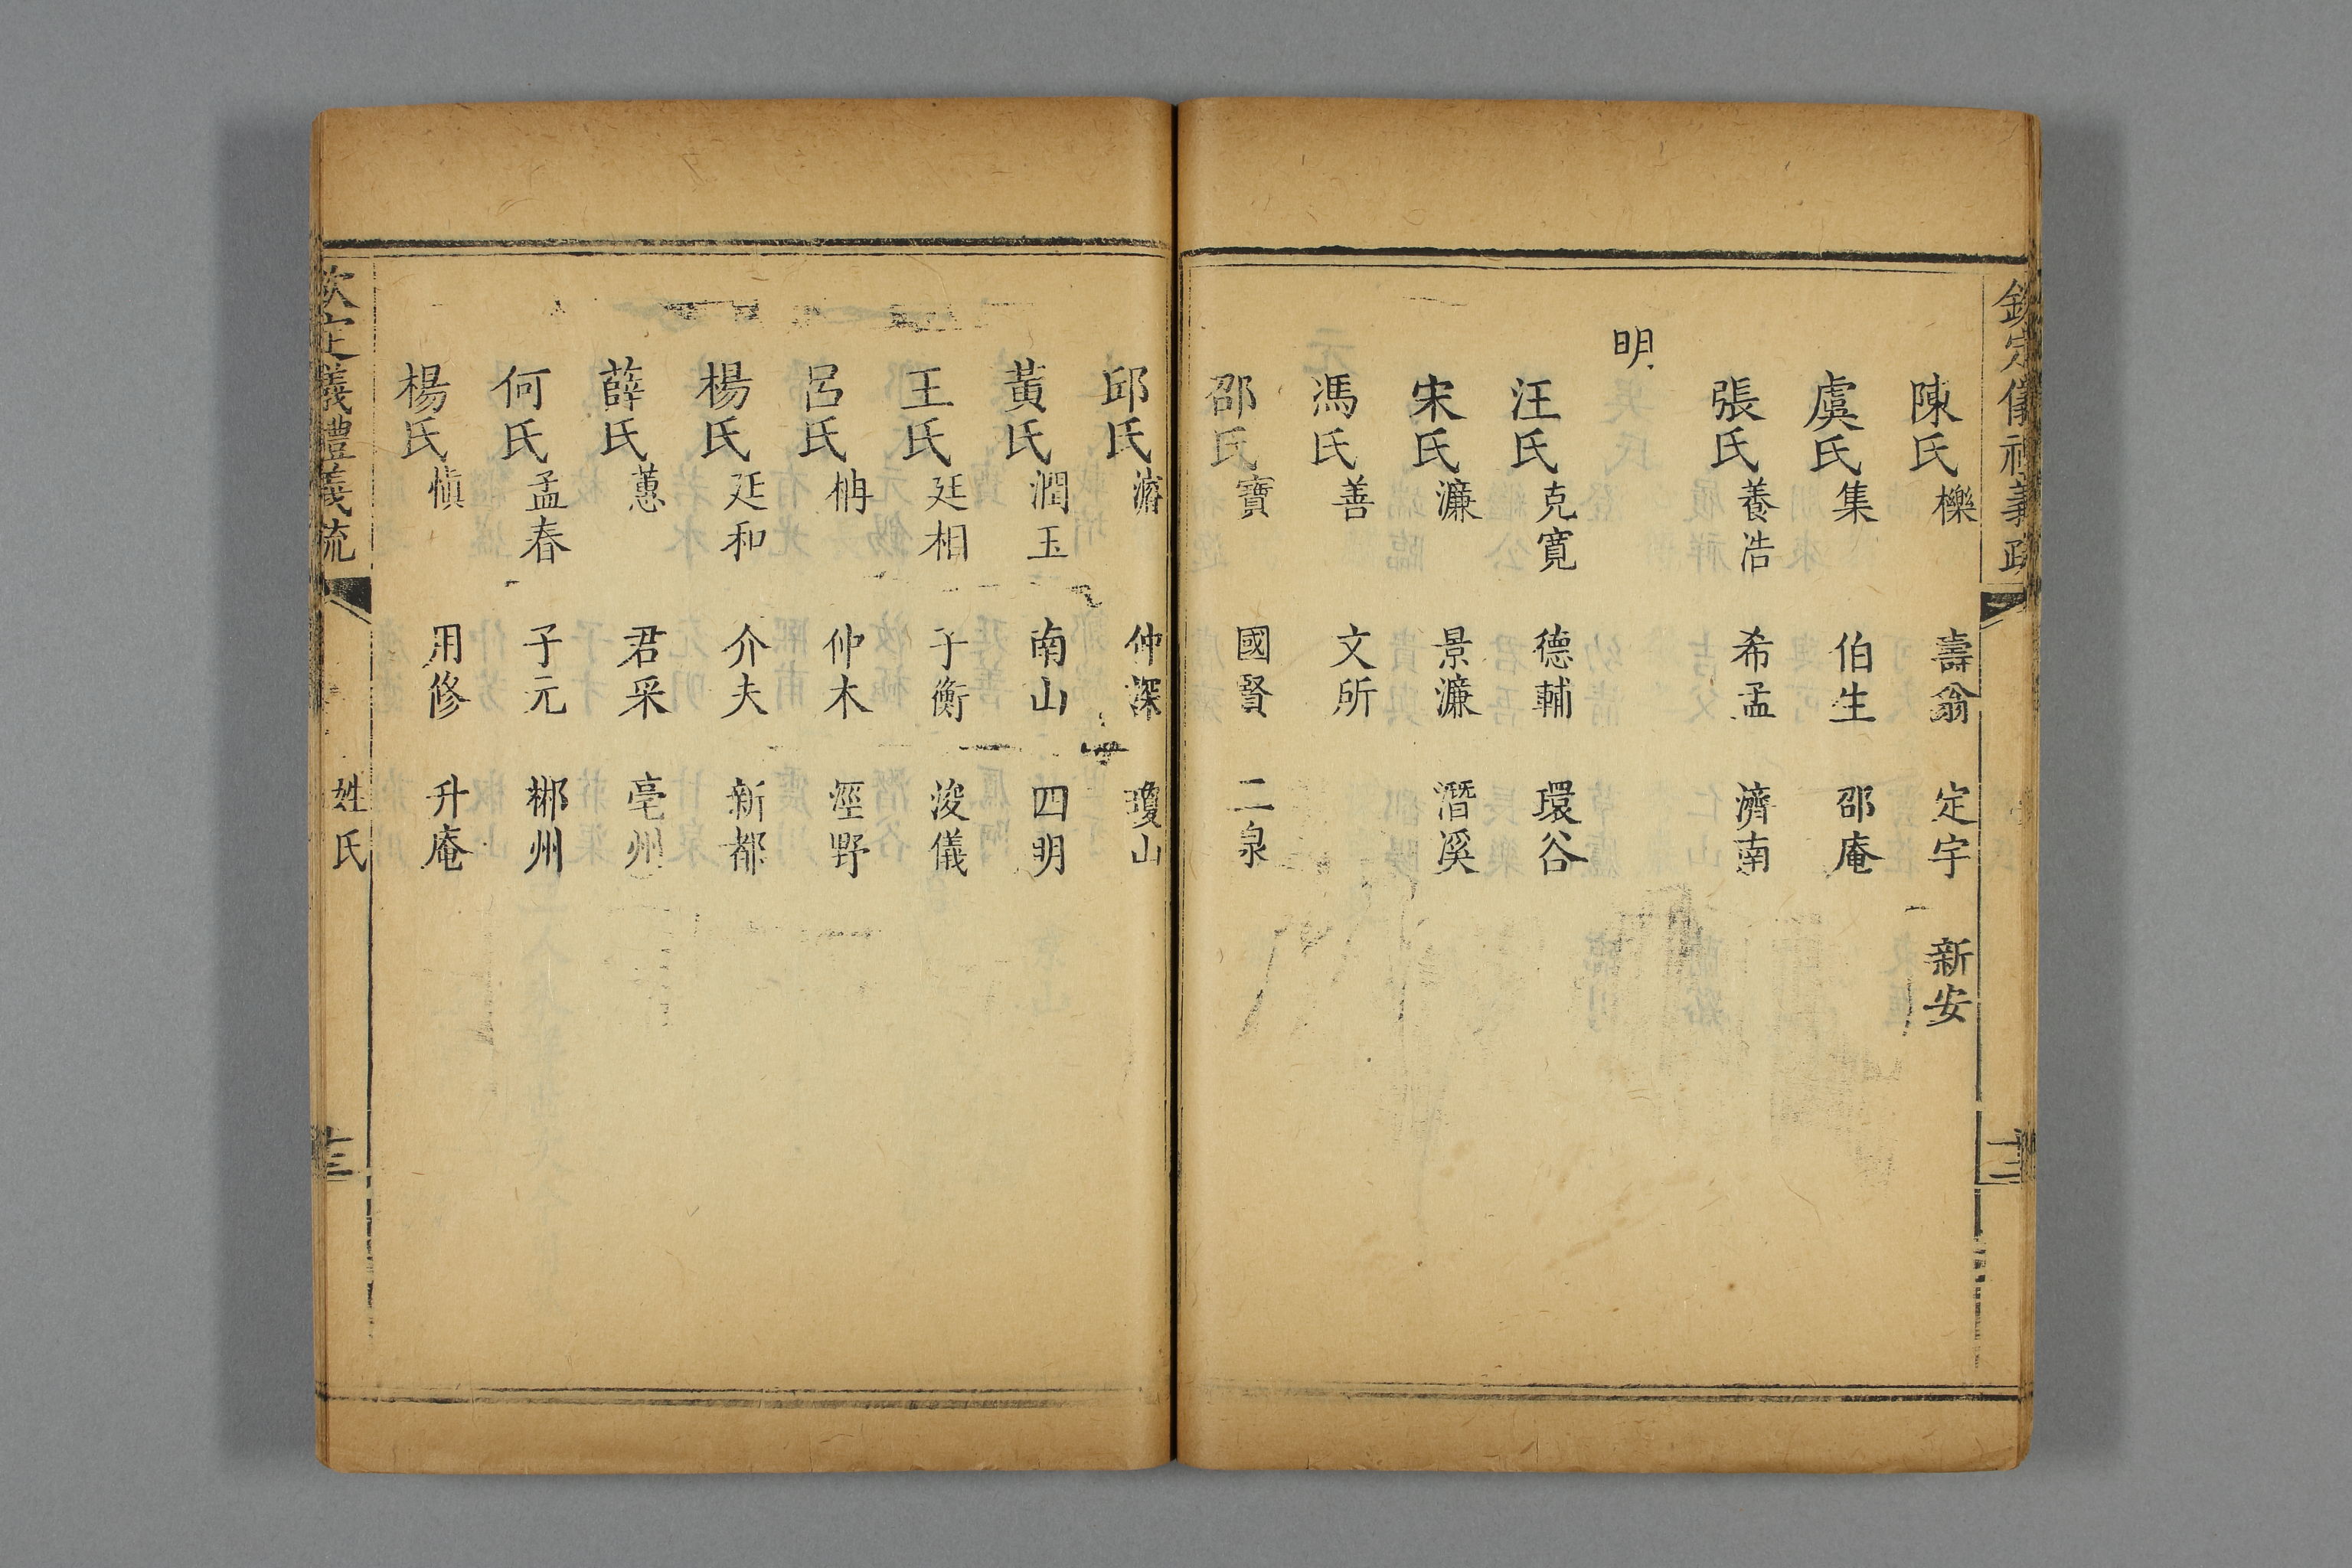 欽定儀禮義疏
十二
陳氏櫟 壽翁 定宇 新安
虞氏集 伯生 邵庵
張氏養浩 希孟 濟南
明
汪氏克寬 德輔 環谷
宋氏濂 景濂 潛溪
馮氏善 文所
邵氏寶 國賢 二泉
邱氏濬 仲深 瓊山
黃氏潤玉 南山 四明
王氏廷相 子衡 浚儀
呂氏柟 仲木 涇野
楊氏廷和 介夫 新都
薛氏蕙 君采 亳州
何氏孟春 子元 郴州
楊氏慎 用修 升庵
欽定儀禮義疏 姓氏 十三